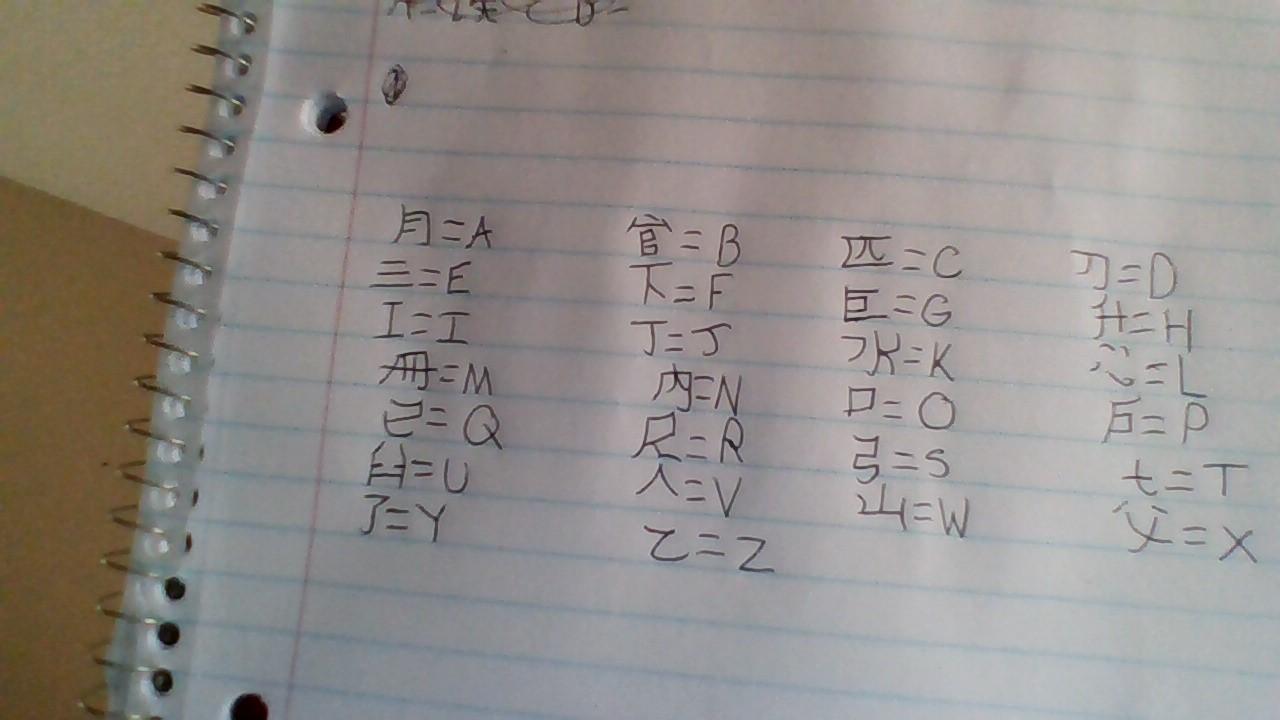 月=A 官=B 匹=C 刃=D
三=E 下=F 巨=G 升=H
工=I 丁=J 水=K 心=L
冊=M 内=N 口=O 戸=P
己=Q 尺=R 弓=S 七=T
臼=U 人=V 山=W 父=X
了=Y 乙=Z